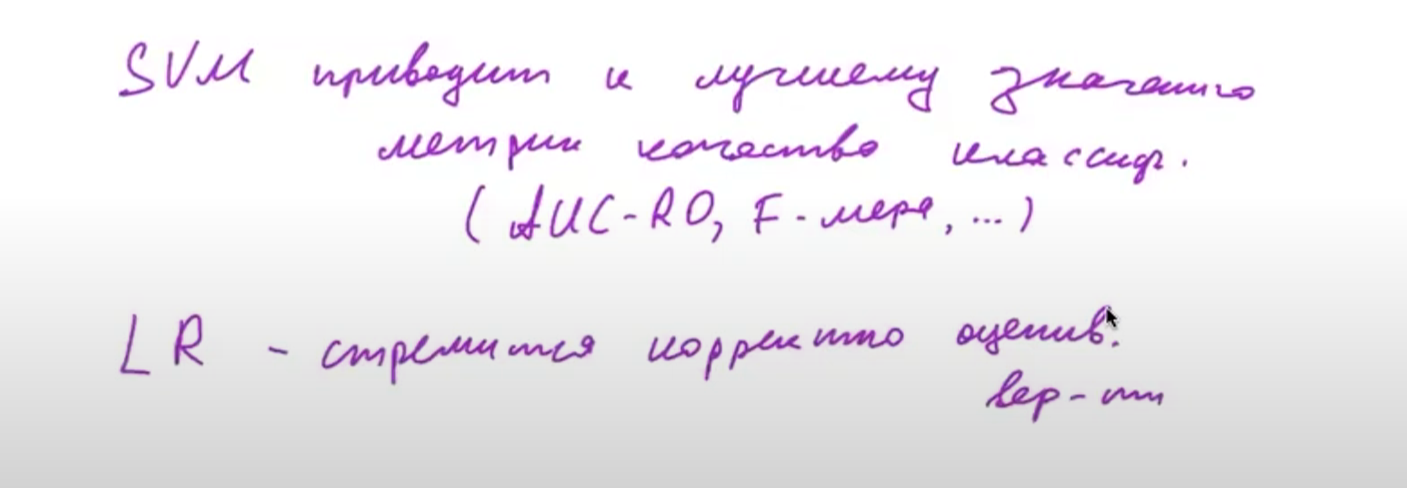 SVM приводит к лучшему значению
метрик качества классиф.
(AUC-RO, F-мера, ...)
LR - стремится корректно оценив.
вер-ти